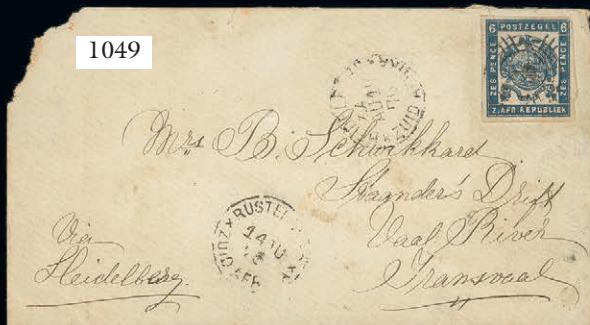 1049
6 POSTZEGEL 6
ZES PENCE
ZES PENCE
Z. AFR REPUBLIEK
Mrs B. Schwikkard
Staander's Drift
Vaal River
Transvaal
Via
Heidelberg.